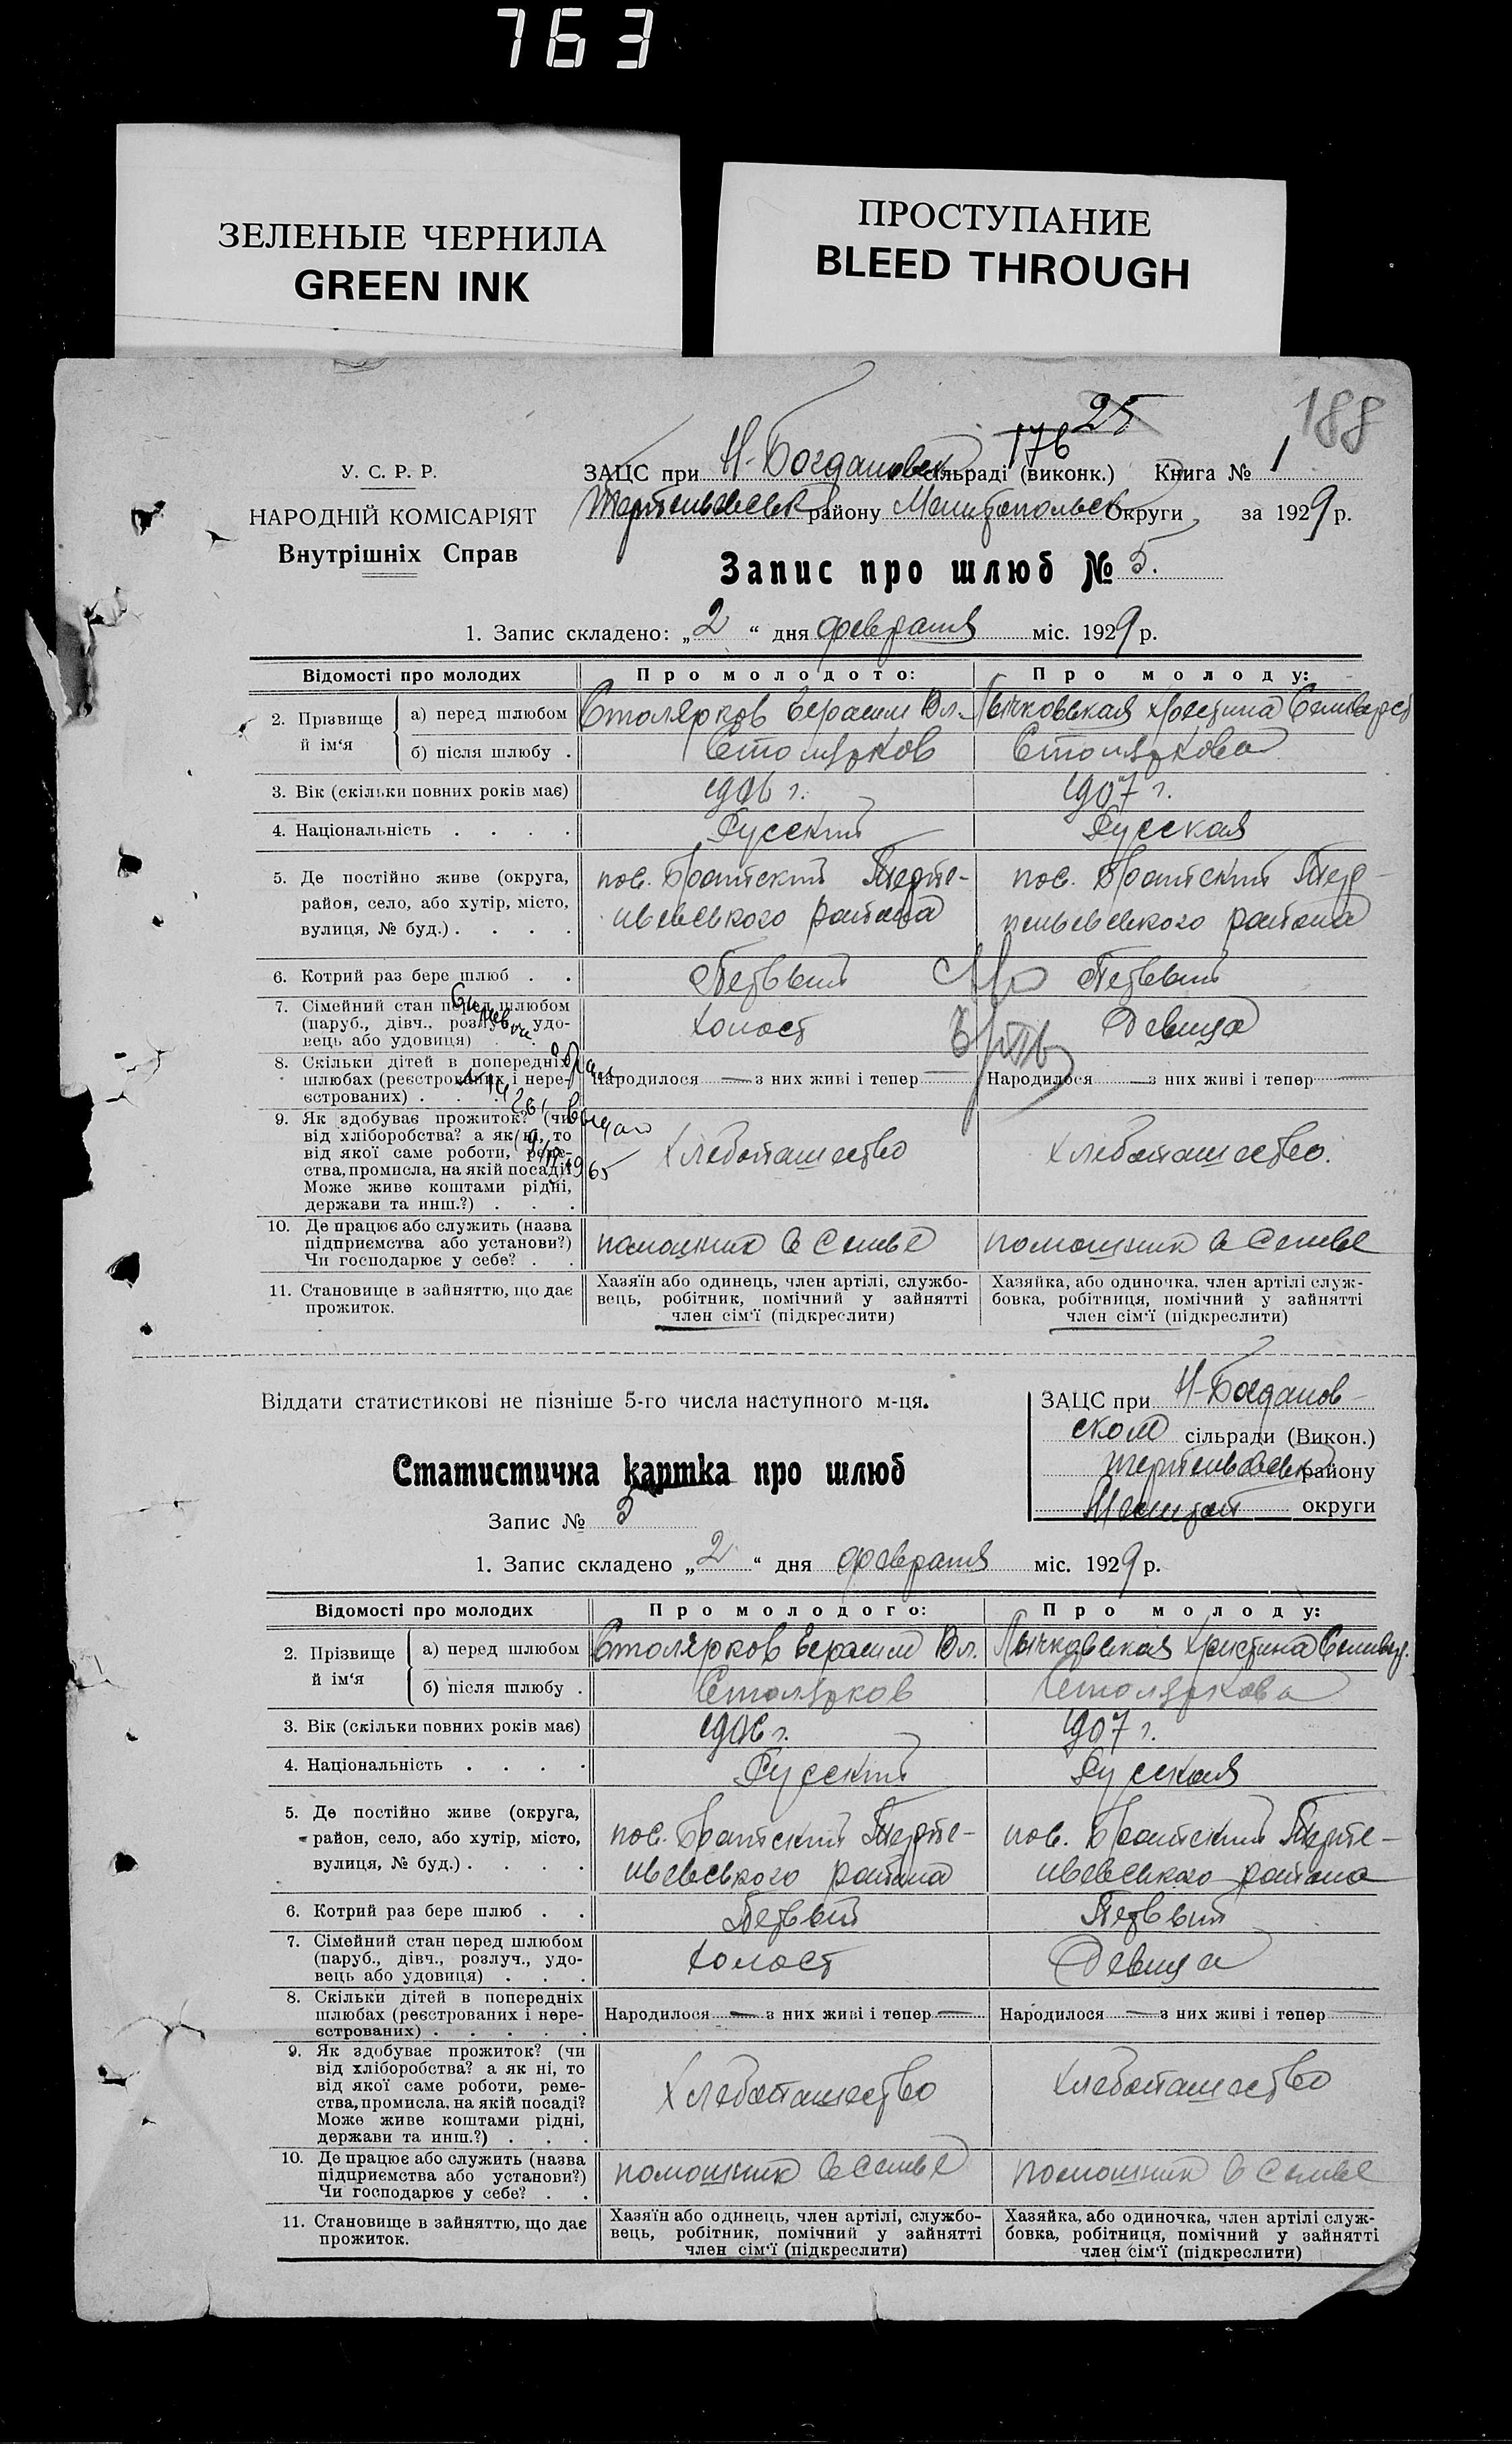 763
ЗЕЛЕНЫЕ ЧЕРНИЛА
GREEN INK
ПРОСТУПАНИЕ
BLEED THROUGH
25
188
176
У. С. Р. Р.
НАРОДНІЙ КОМІСАРІЯТ
Внутрішніх Справ
ЗАЦС при Н-Богдановск сільраді (виконк.) Книга № 1
району Мелитопольск Округи за 1929 р.
Запис про шлюб № 5.
1. Запис складено: „2“ дня февраля міс. 1929 р.
Відомості про молодих
Про молодого:
Про молоду:
2. Прізвище й ім'я
а) перед шлюбом
Столярков Герасим Вл.
Христина
б) після шлюбу .
Столярков
Столяркова
3. Вік (скільки повних років має)
1906 г.
1907 г.
4. Національність . . . .
Русский
Русская
5. Де постійно живе (округа,
район, село, або хутір, місто,
вулиця, № буд.) . . . .
пос. Братский Терпе-
ньевського района
пос. Братский Терпе-
ньевського района
6. Котрий раз бере шлюб . .
Первый
Первый
7. Сімейний стан перед шлюбом
(паруб., дівч., розлуч., удо-
вець або удовиця) . . .
Холост
Девица
8. Скільки дітей в попередніх
шлюбах (реєстрованих і нере-
єстрованих) . . . .
Народилося — з них живі і тепер —
Народилося — з них живі і тепер —
9. Як здобуває прожиток? (чи
від хліборобства? а як ні, то
від якої саме роботи, реме-
ства, промисла, на якій посаді?
Може живе коштами рідні,
держави та инш.?) . . .
Хлебопашество
Хлебопашество.
10. Де працює або служить (назва
підприємства або установи?)
Чи господарює у себе? . .
помощник в семье
помощник в семье
11. Становище в зайняттю, що дає
прожиток.
Хазяїн або одинець, член артілі, службо-
вець, робітник, помічний у зайнятті
член сім'ї (підкреслити)
Хазяйка, або одиночка, член артілі служ-
бовка, робітниця, помічний у зайнятті
член сім'ї (підкреслити)
Віддати статистикові не пізніше 5-го числа наступного м-ця.
ЗАЦС при Н-Богданов-
ском сільради (Викон.)
району
округи
Статистична картка про шлюб
Запис № 5
1. Запис складено „2“ дня февраля міс. 1929 р.
Відомості про молодих
Про молодого:
Про молоду:
2. Прізвище й ім'я
а) перед шлюбом
Столярков Герасим Вл.
Христина
б) після шлюбу .
Столярков
Столяркова
3. Вік (скільки повних років має)
1906 г.
1907 г.
4. Національність . . . .
Русский
Русская
5. Де постійно живе (округа,
район, село, або хутір, місто,
вулиця, № буд.) . . . .
пос. Братский Терпе-
ньевського района
пос. Братский Терпе-
ньевського района
6. Котрий раз бере шлюб . .
Первый
Первый
7. Сімейний стан перед шлюбом
(паруб., дівч., розлуч., удо-
вець або удовиця) . . .
Холост
Девица
8. Скільки дітей в попередніх
шлюбах (реєстрованих і нере-
єстрованих) . . . . .
Народилося — з них живі і тепер —
Народилося — з них живі і тепер —
9. Як здобуває прожиток? (чи
від хліборобства? а як ні, то
від якої саме роботи, реме-
ства, промисла, на якій посаді?
Може живе коштами рідні,
держави та инш.?) . . .
Хлебопашество
Хлебопашество
10. Де працює або служить (назва
підприємства або установи?)
Чи господарює у себе? . .
помошник в семье
помошник в семье
11. Становище в зайняттю, що дає
прожиток.
Хазяїн або одинець, член артілі, службо-
вець, робітник, помічний у зайнятті
член сім'ї (підкреслити)
Хазяйка, або одиночка, член артілі служ-
бовка, робітниця, помічний у зайнятті
член сім'ї (підкреслити)